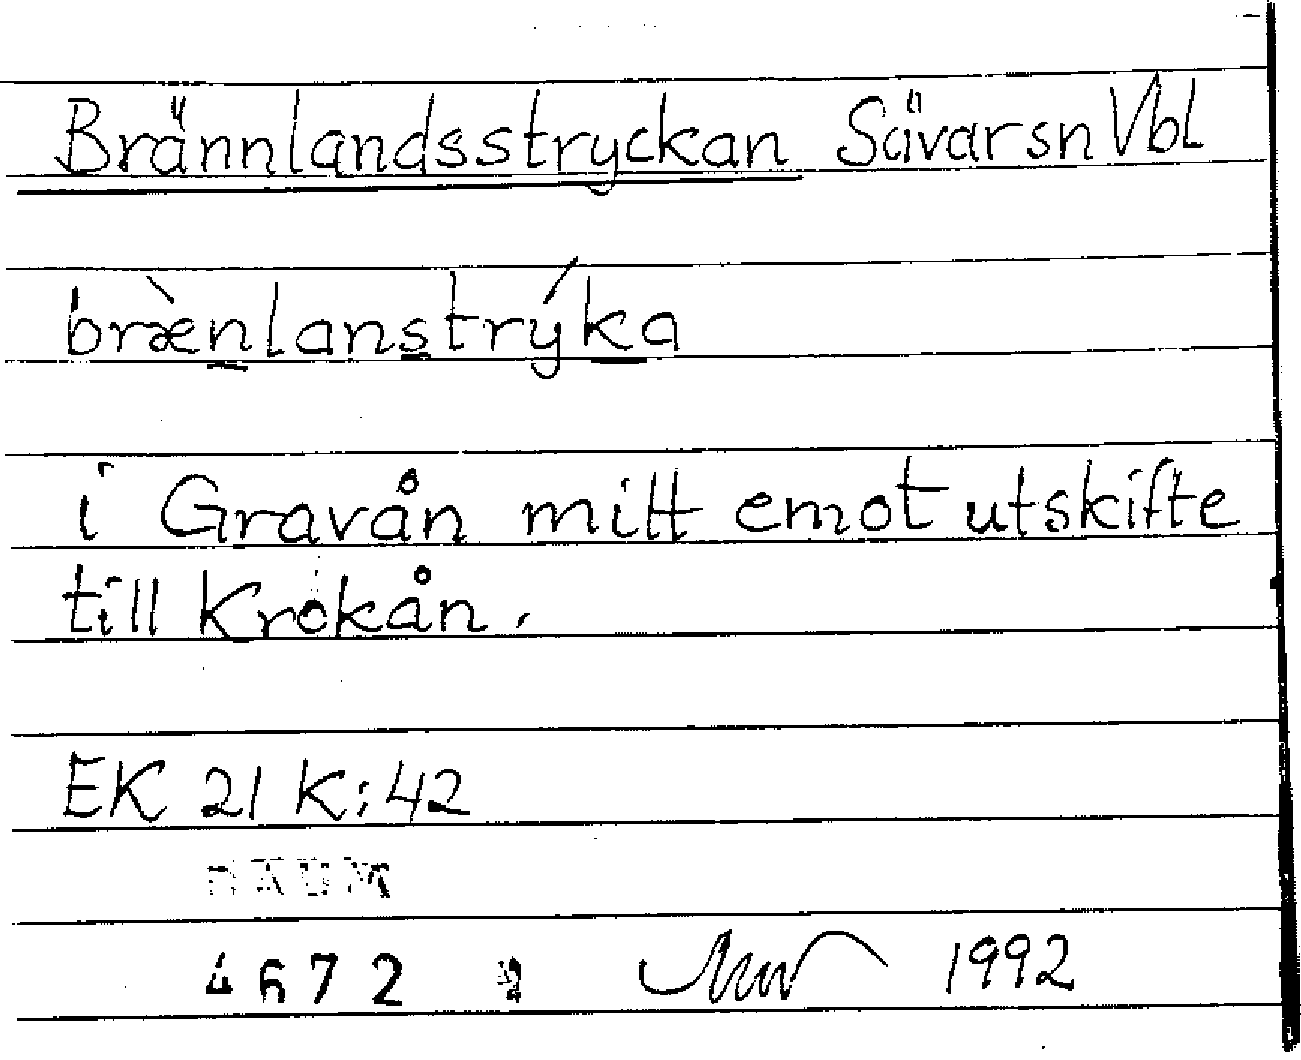 Brännlandsstryckan Sävar sn Vbl
bræ̀nlanstrýka
i Gravån mitt emot utskifte
till Krokån.
EK 21 K:42
DAUM
4672
1992